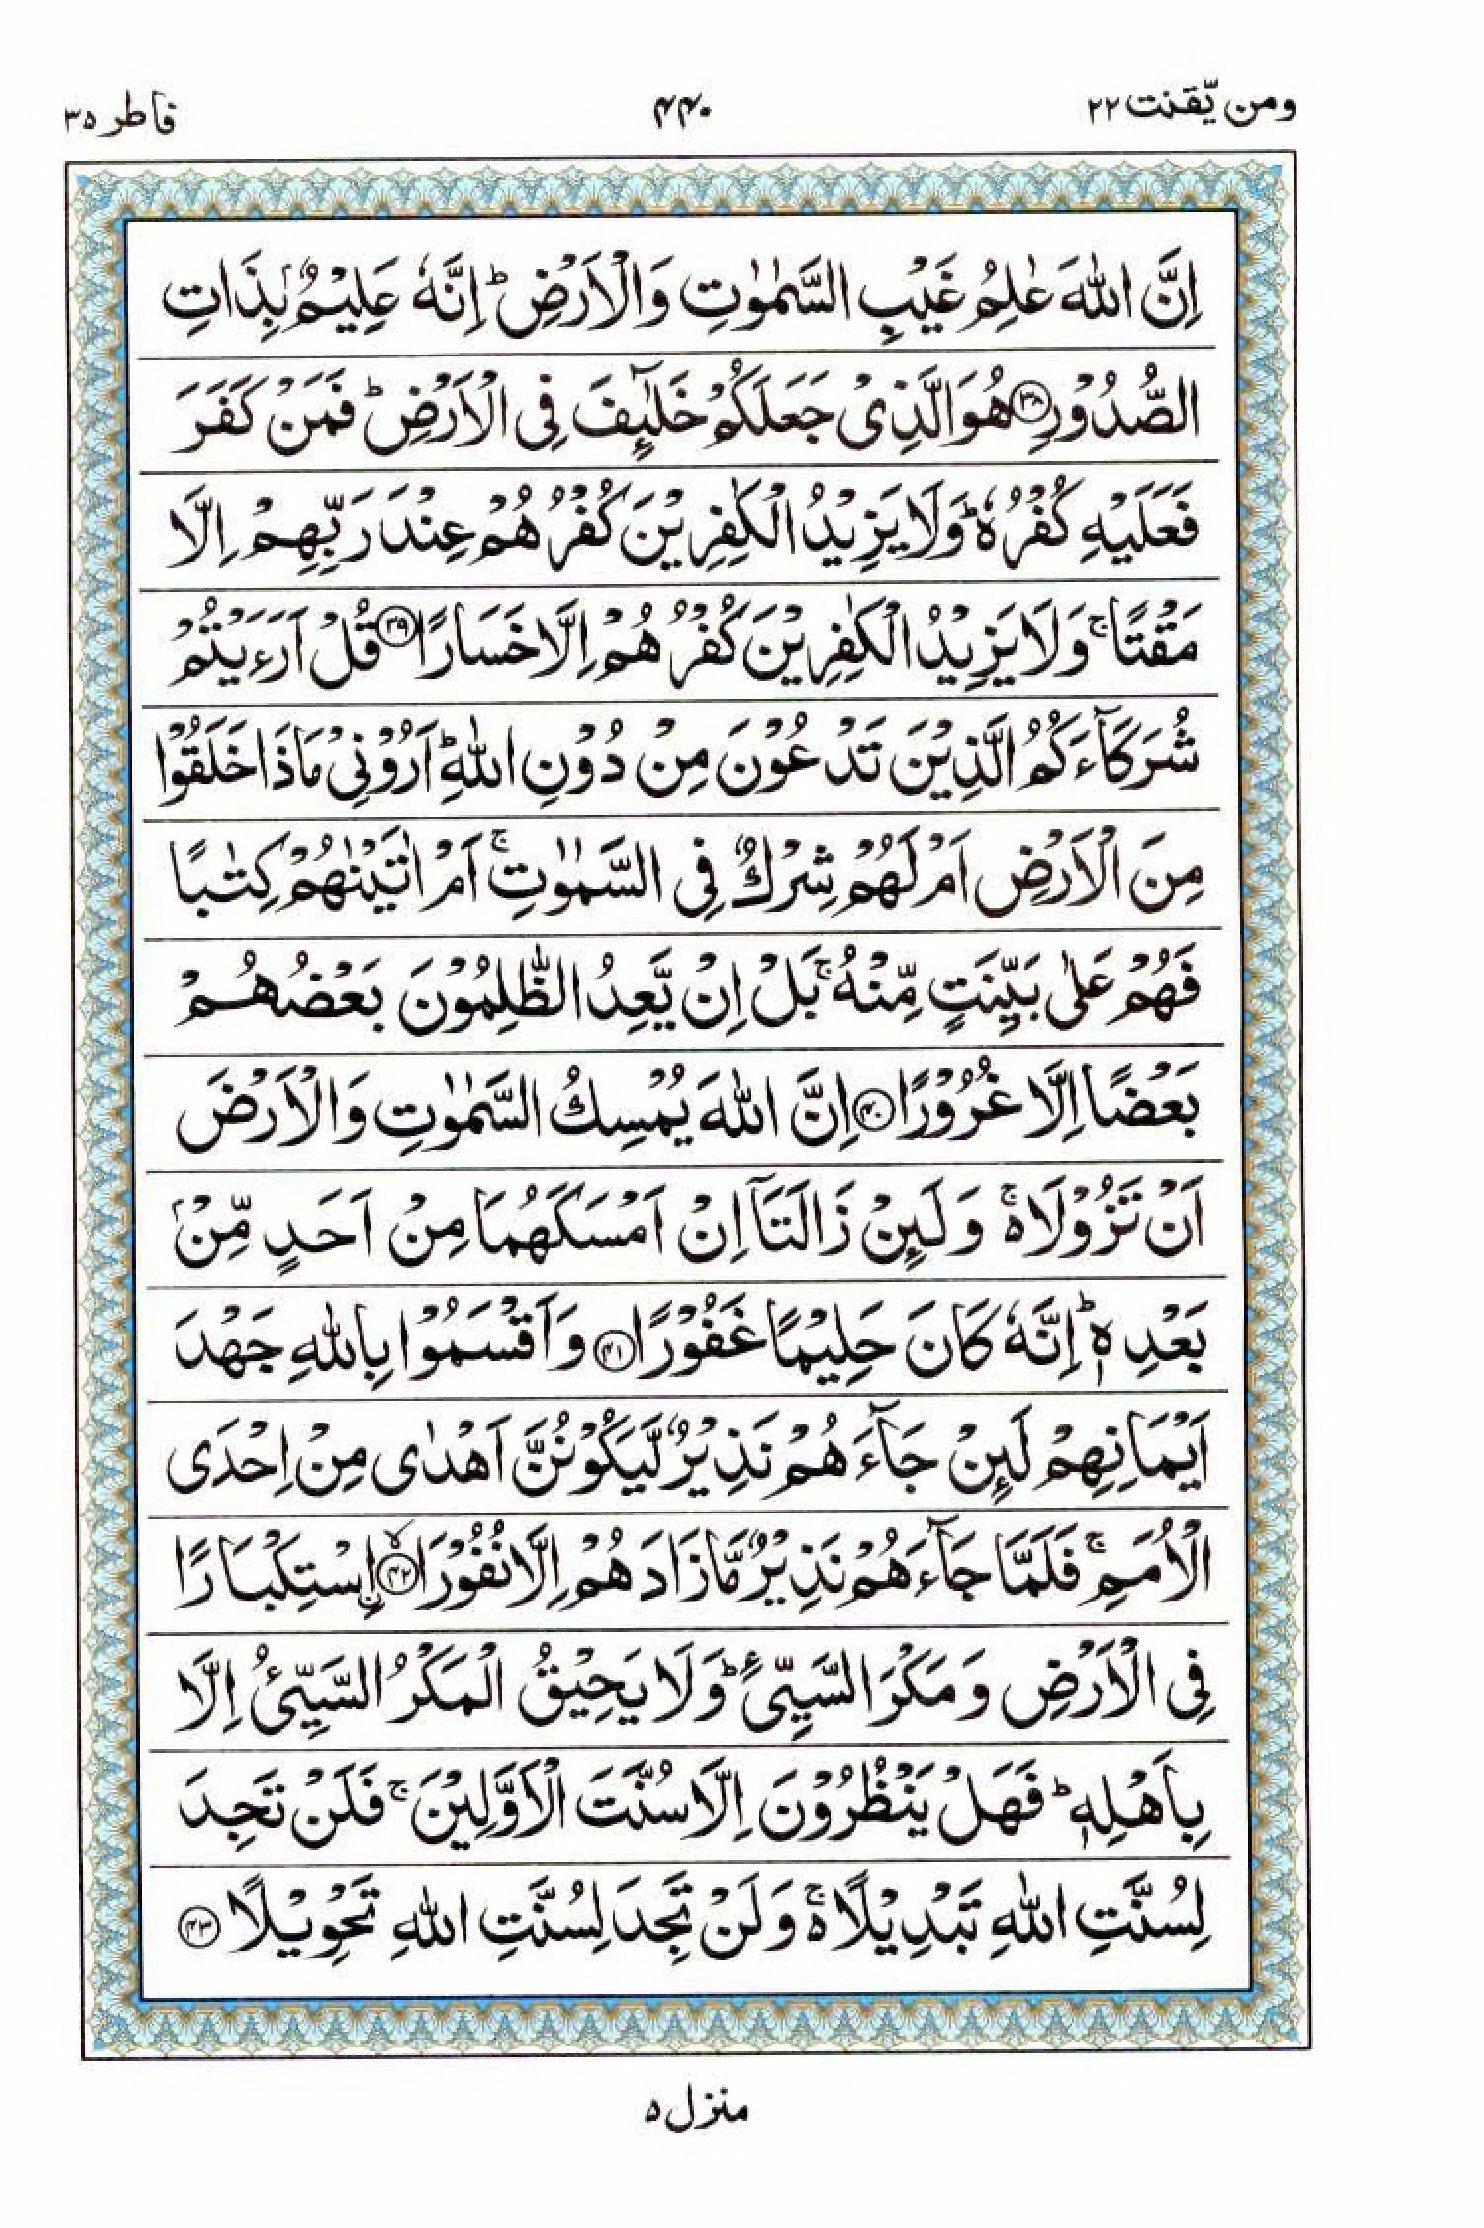 ومن يّقنت ٢٢
٤٤٠
فاطر ٣٥
اِنَّ اللّٰهَ عٰلِمُ غَيْبِ السَّمٰوٰتِ وَالْاَرْضِ ؕ اِنَّهٗ عَلِيْمٌۢ بِذَاتِ
الصُّدُوْرِ ﴿۳۸﴾ هُوَ الَّذِىْ جَعَلَكُمْ خَلٰٓئِفَ فِى الْاَرْضِ ؕ فَمَنْ كَفَرَ
فَعَلَيْهِ كُفْرُهٗ ؕ وَلَا يَزِيْدُ الْكٰفِرِيْنَ كُفْرُهُمْ عِنْدَ رَبِّهِمْ اِلَّا
مَقْتًا ۚ وَلَا يَزِيْدُ الْكٰفِرِيْنَ كُفْرُهُمْ اِلَّا خَسَارًا ﴿۳۹﴾ قُلْ اَرَءَيْتُمْ
شُرَكَآءَكُمُ الَّذِيْنَ تَدْعُوْنَ مِنْ دُوْنِ اللّٰهِ ؕ اَرُوْنِىْ مَاذَا خَلَقُوْا
مِنَ الْاَرْضِ اَمْ لَهُمْ شِرْكٌ فِى السَّمٰوٰتِ ۚ اَمْ اٰتَيْنٰهُمْ كِتٰبًا
فَهُمْ عَلٰى بَيِّنَتٍ مِّنْهُ ۚ بَلْ اِنْ يَّعِدُ الظّٰلِمُوْنَ بَعْضُهُمْ
بَعْضًا اِلَّا غُرُوْرًا ﴿۴۰﴾ اِنَّ اللّٰهَ يُمْسِكُ السَّمٰوٰتِ وَالْاَرْضَ
اَنْ تَزُوْلَا ۚ۬ وَلَئِنْ زَالَتَاۤ اِنْ اَمْسَكَهُمَا مِنْ اَحَدٍ مِّنْۢ
بَعْدِهٖ ؕ اِنَّهٗ كَانَ حَلِيْمًا غَفُوْرًا ﴿۴۱﴾ وَاَقْسَمُوْا بِاللّٰهِ جَهْدَ
اَيْمَانِهِمْ لَئِنْ جَآءَهُمْ نَذِيْرٌ لَّيَكُوْنُنَّ اَهْدٰى مِنْ اِحْدَى
الْاُمَمِ ۚ فَلَمَّا جَآءَهُمْ نَذِيْرٌ مَّا زَادَهُمْ اِلَّا نُفُوْرَا ﴿۴۲﴾ اۨسْتِكْبَارًا
فِى الْاَرْضِ وَمَكْرَ السَّيِّئِ ؕ وَلَا يَحِيْقُ الْمَكْرُ السَّيِّئُ اِلَّا
بِاَهْلِهٖ ؕ فَهَلْ يَنْظُرُوْنَ اِلَّا سُنَّتَ الْاَوَّلِيْنَ ۚ فَلَنْ تَجِدَ
لِسُنَّتِ اللّٰهِ تَبْدِيْلًا ۚ۬ وَلَنْ تَجِدَ لِسُنَّتِ اللّٰهِ تَحْوِيْلًا ﴿۴۳﴾
منزل ٥